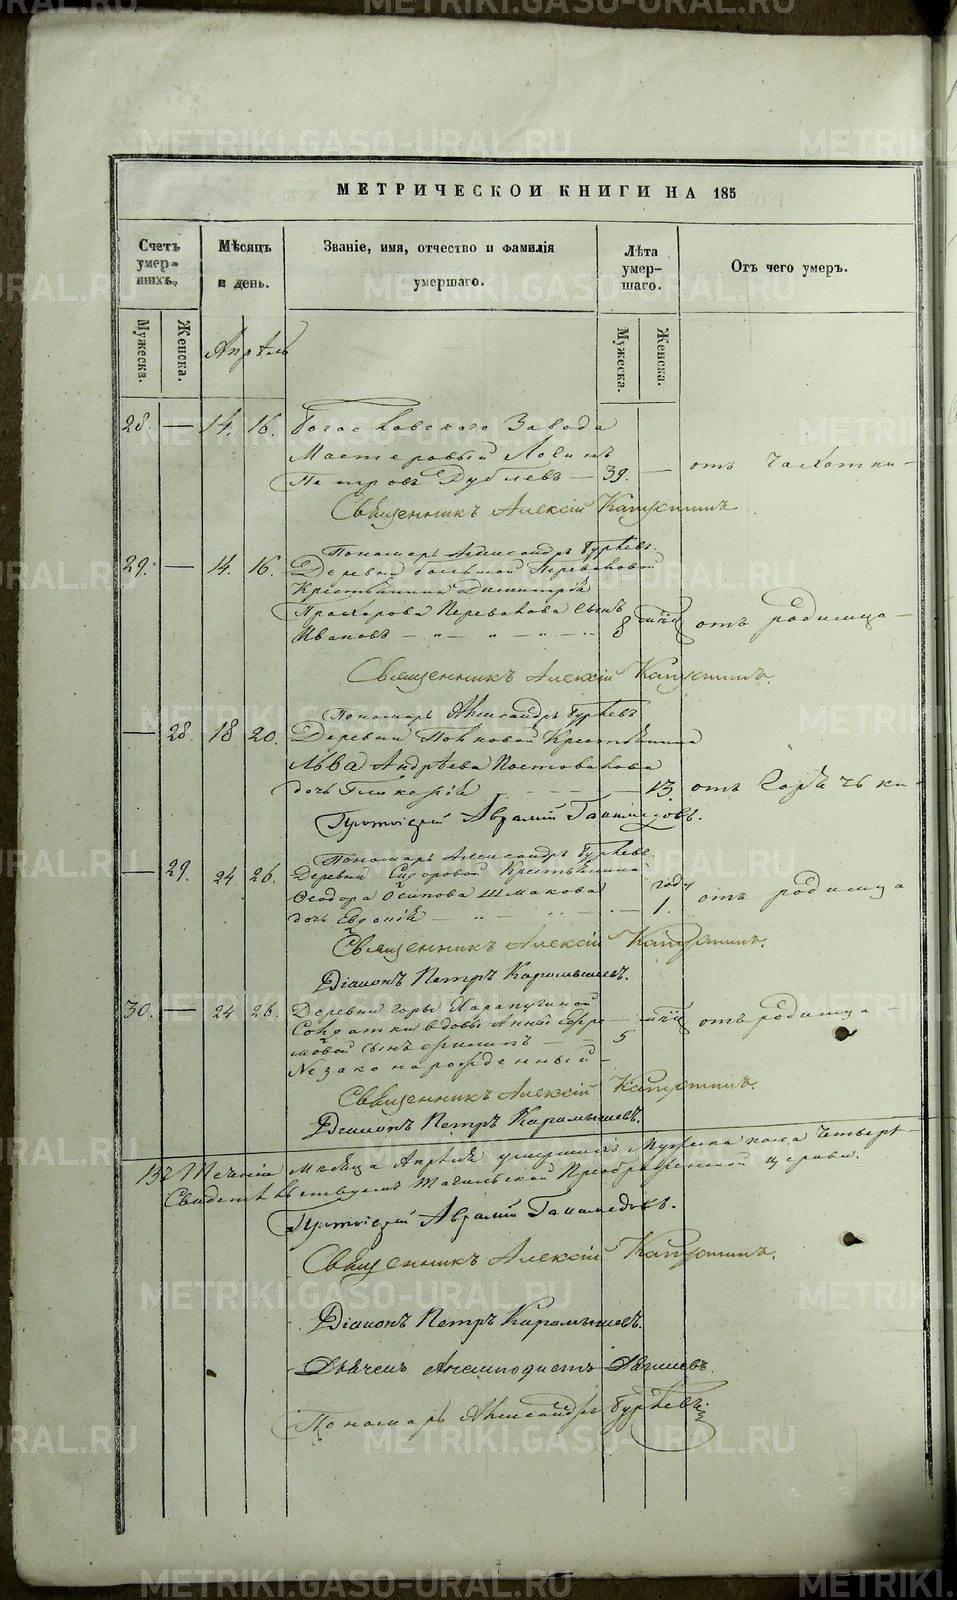 МЕТРИЧЕСКОЙ КНИГИ НА 185
Счетъ умер- шихъ.
Мѣсяцъ и день.
Званіе, имя, отчество и фамилія умершаго.
Лѣта умер- шаго.
Отъ чего умеръ.
Мужеска.
Женска.
Апрѣль
Мужеска.
Женска.
28. — 14. 16. Богословскаго Завода
Мастеровый Логинъ
Петровъ Дублевъ — 39. — отъ чахотки —
Священникъ Алексій Капустинъ
Пономарь Александръ Гурьевъ.
29. — 14. 16. Деревни большой Переваловой
Крестьянина Димитрія
Прохорова Перевалова сынъ
Иванъ — 8 отъ родимца —
Священникъ Алексій Капустинъ.
Пономарь Александръ Гурьевъ
— 28. 18 20. Деревни Крестьянина
Льва Андрѣева Постовалова
дочь Гликерія — 13. отъ горячки —
Протоіерей Аврамій Ганимедовъ.
Пономарь Александръ Гурьевъ.
— 29. 24 26. Деревни Сидоровой Крестьянина
Ѳеодора Осипова Шмакова году
дочь — 1. отъ родимца
Священникъ Алексій Капустинъ.
Діаконъ Петръ Карамышевъ.
30. — 24 26. Деревни горы
Солдатки вдовы Анны Ефре-
мовой сынъ Филиппъ — 5 отъ родимца —
Незаконорожденный —
Священникъ Алексій Капустинъ.
Діаконъ Петръ Карамышевъ.
Въ Теченіи Мѣсяца Апрѣля умершихъ Мужеска пола Четверо
Свидетельствуемъ Тагильской церкви.
Протоіерей Аврамій Ганимедовъ.
Священникъ Алексій Капустинъ.
Діаконъ Петръ Карамышевъ.
Дьячекъ
Пономарь Александръ Гурьевъ
METRIKI.GASO-URAL.RU